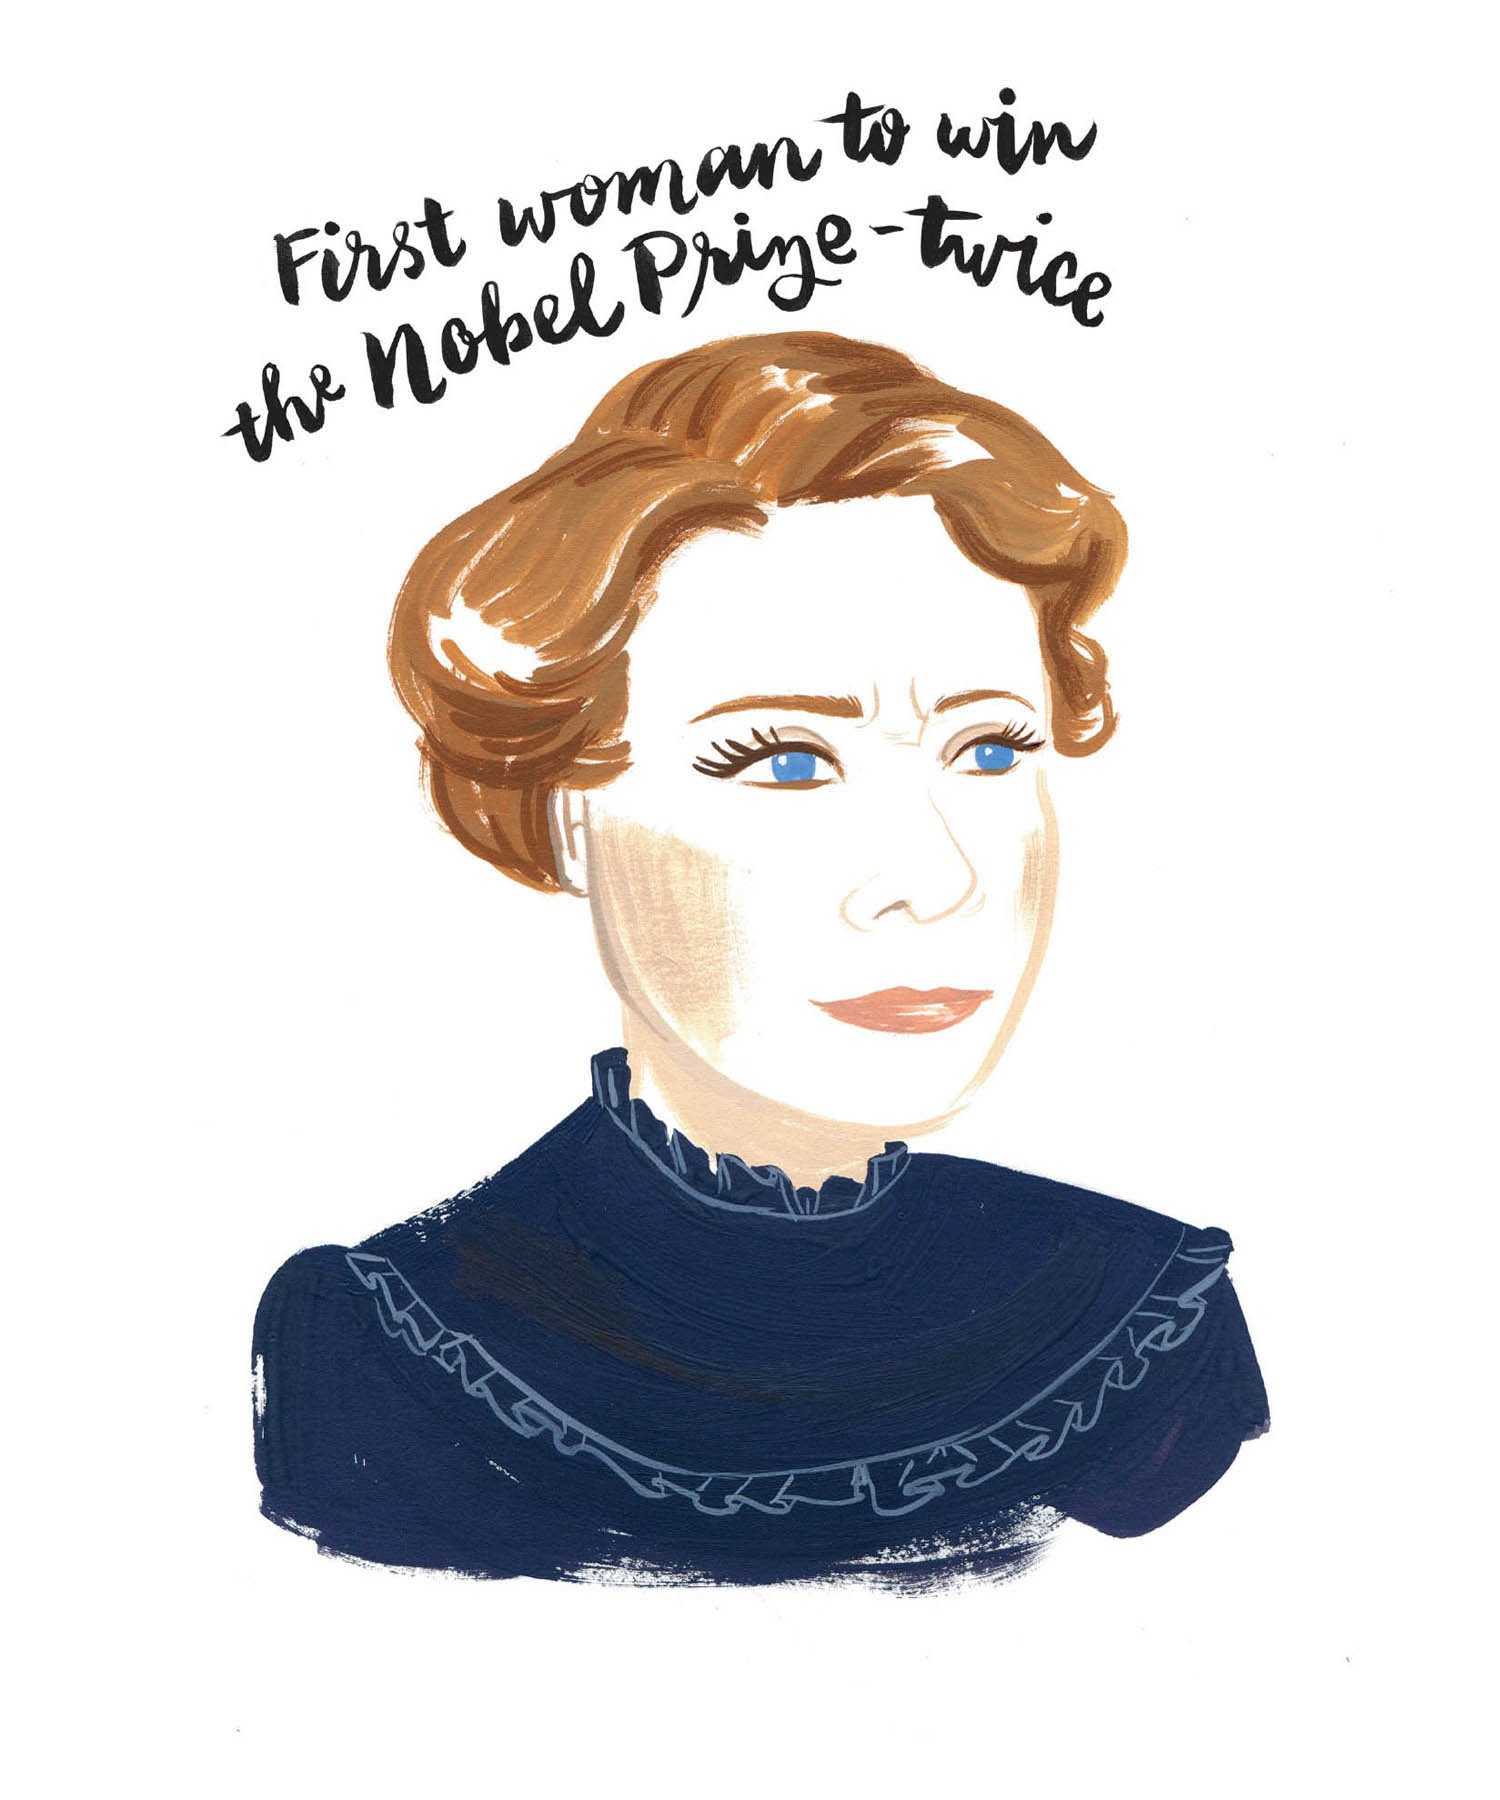 First woman to win
the Nobel Prize-twice